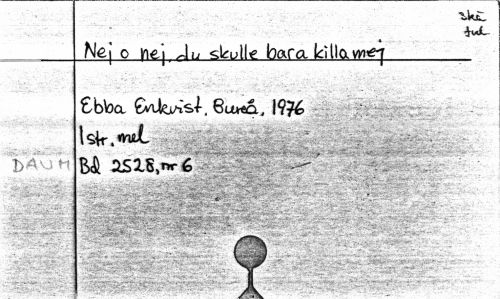 Skä
ful
Nej o nej, du skulle bara killa mej
Ebba Enkvist, Bureå, 1976
1 str, mel
DAUM Bd 2528, nr 6